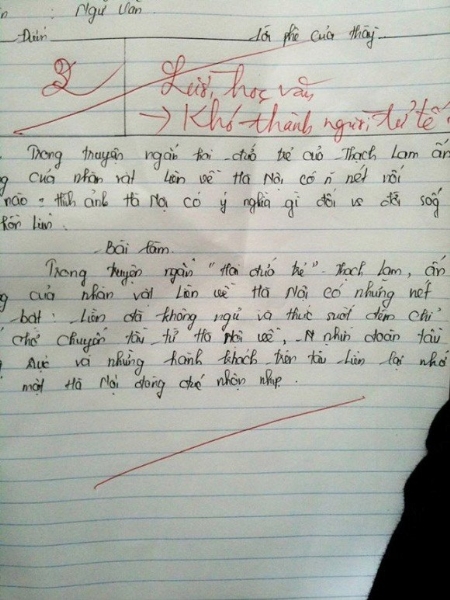 : Ngữ Văn
Điểm
Lời phê của thầy
2
Lười học văn
→ Khó thành người tử tế
Trong truyện ngắn hai đứa trẻ của Thạch Lam ấn
g của nhân vật Liên về Hà Nội có n nét nổi
nào. Hình ảnh Hà Nội có ý nghĩa gì đối vs đời sống
hồn Liên.
Bài làm
Trong truyện ngắn "Hai đứa trẻ" - Thạch Lam, ấn
g của nhân vật Liên về Hà Nội có những nét
bật: Liên đã không ngủ và thức suốt đêm chỉ
chờ chuyến tàu từ Hà Nội về, nhìn đoàn tàu
rực và những hành khách trên tàu Liên lại nhớ
một Hà Nội đông đúc nhộn nhịp.